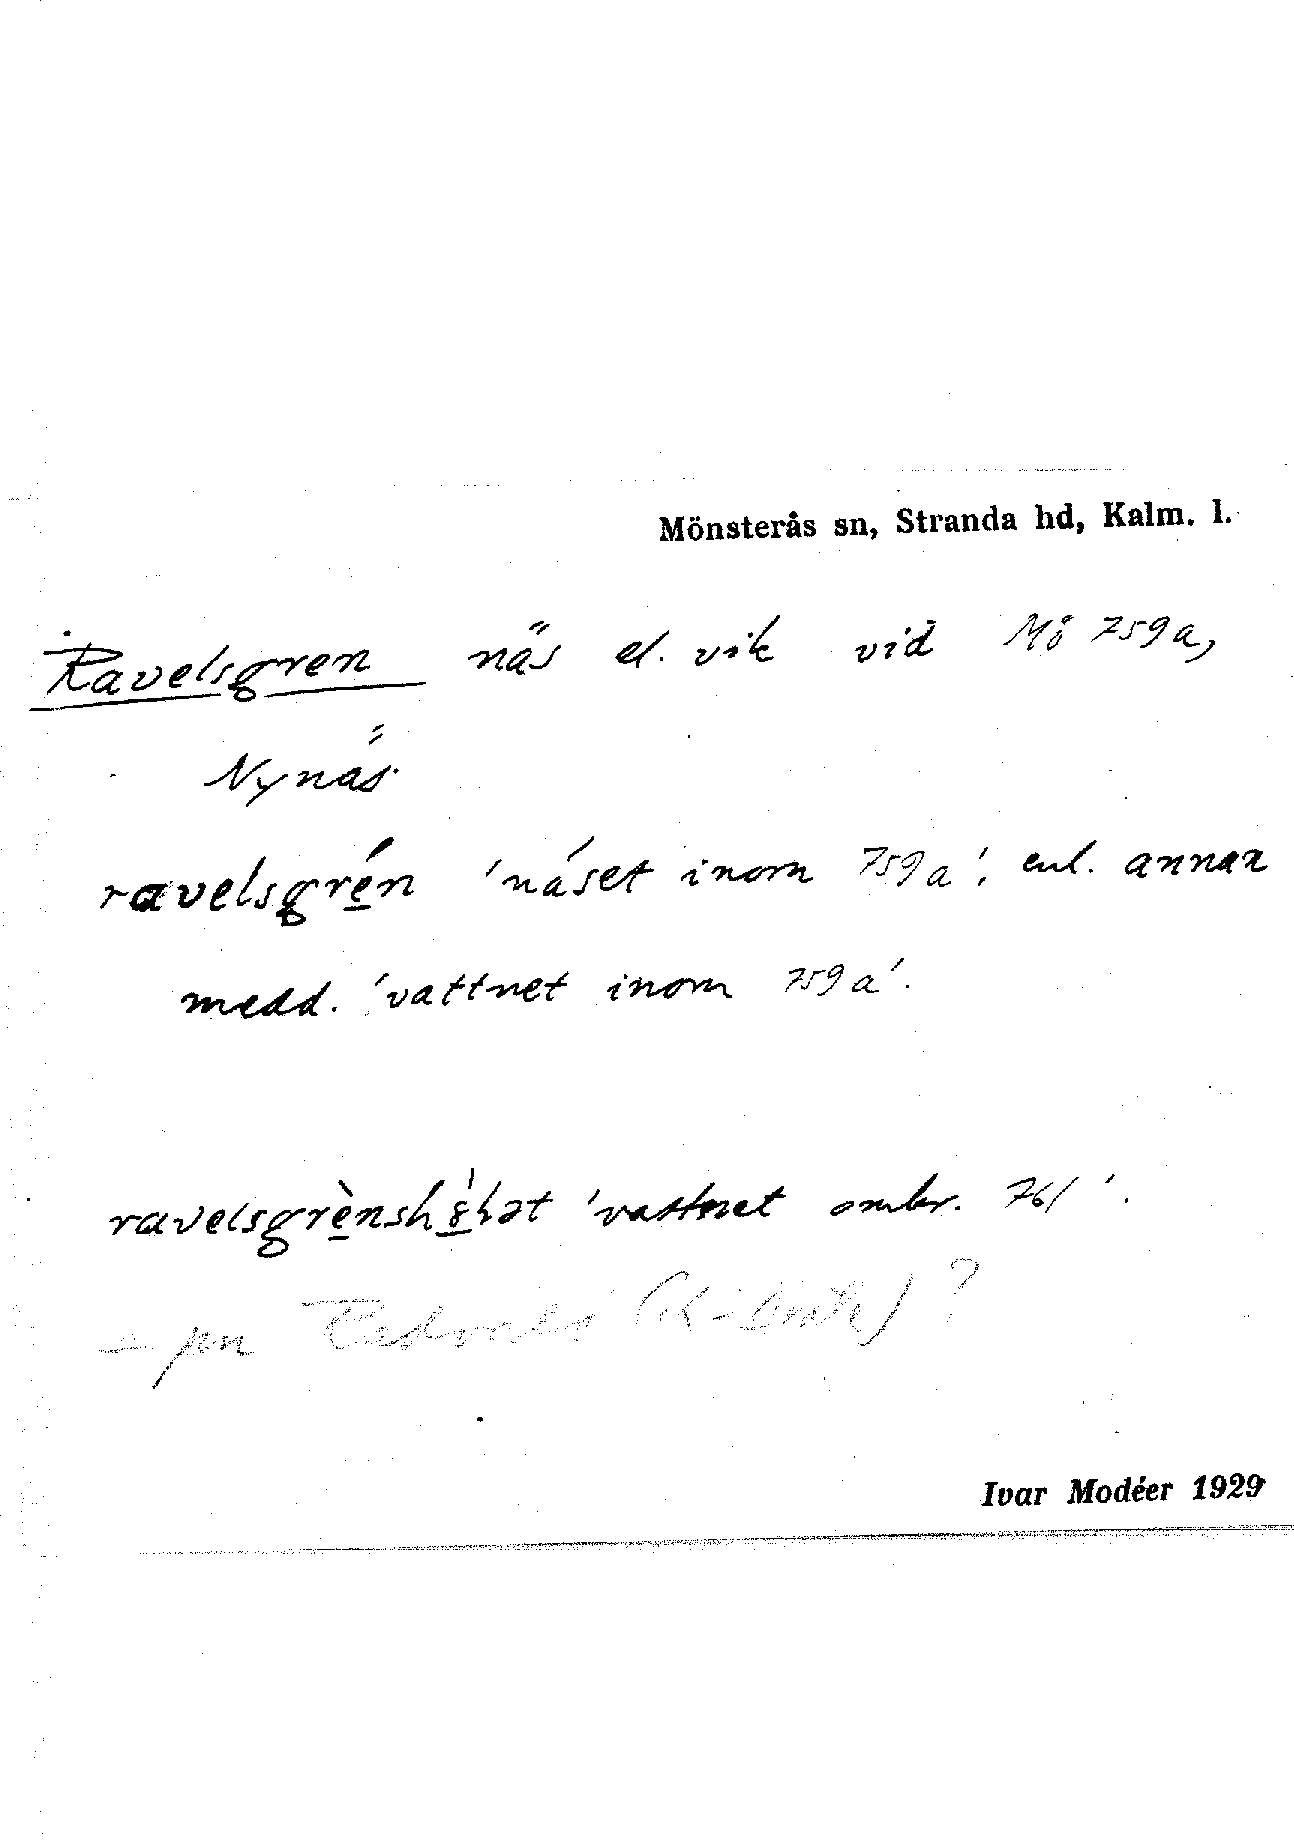 Mönsterås sn, Stranda hd, Kalm. l.
Ravelsgren näs el. vik vid Mö 759a,
Nynäs
ravelsgrén 'näset inom 759a', enl. annan
medd. 'vattnet inom 759a'.
'vattnet omkr. 761'.
– pn ?
Ivar Modéer 1929